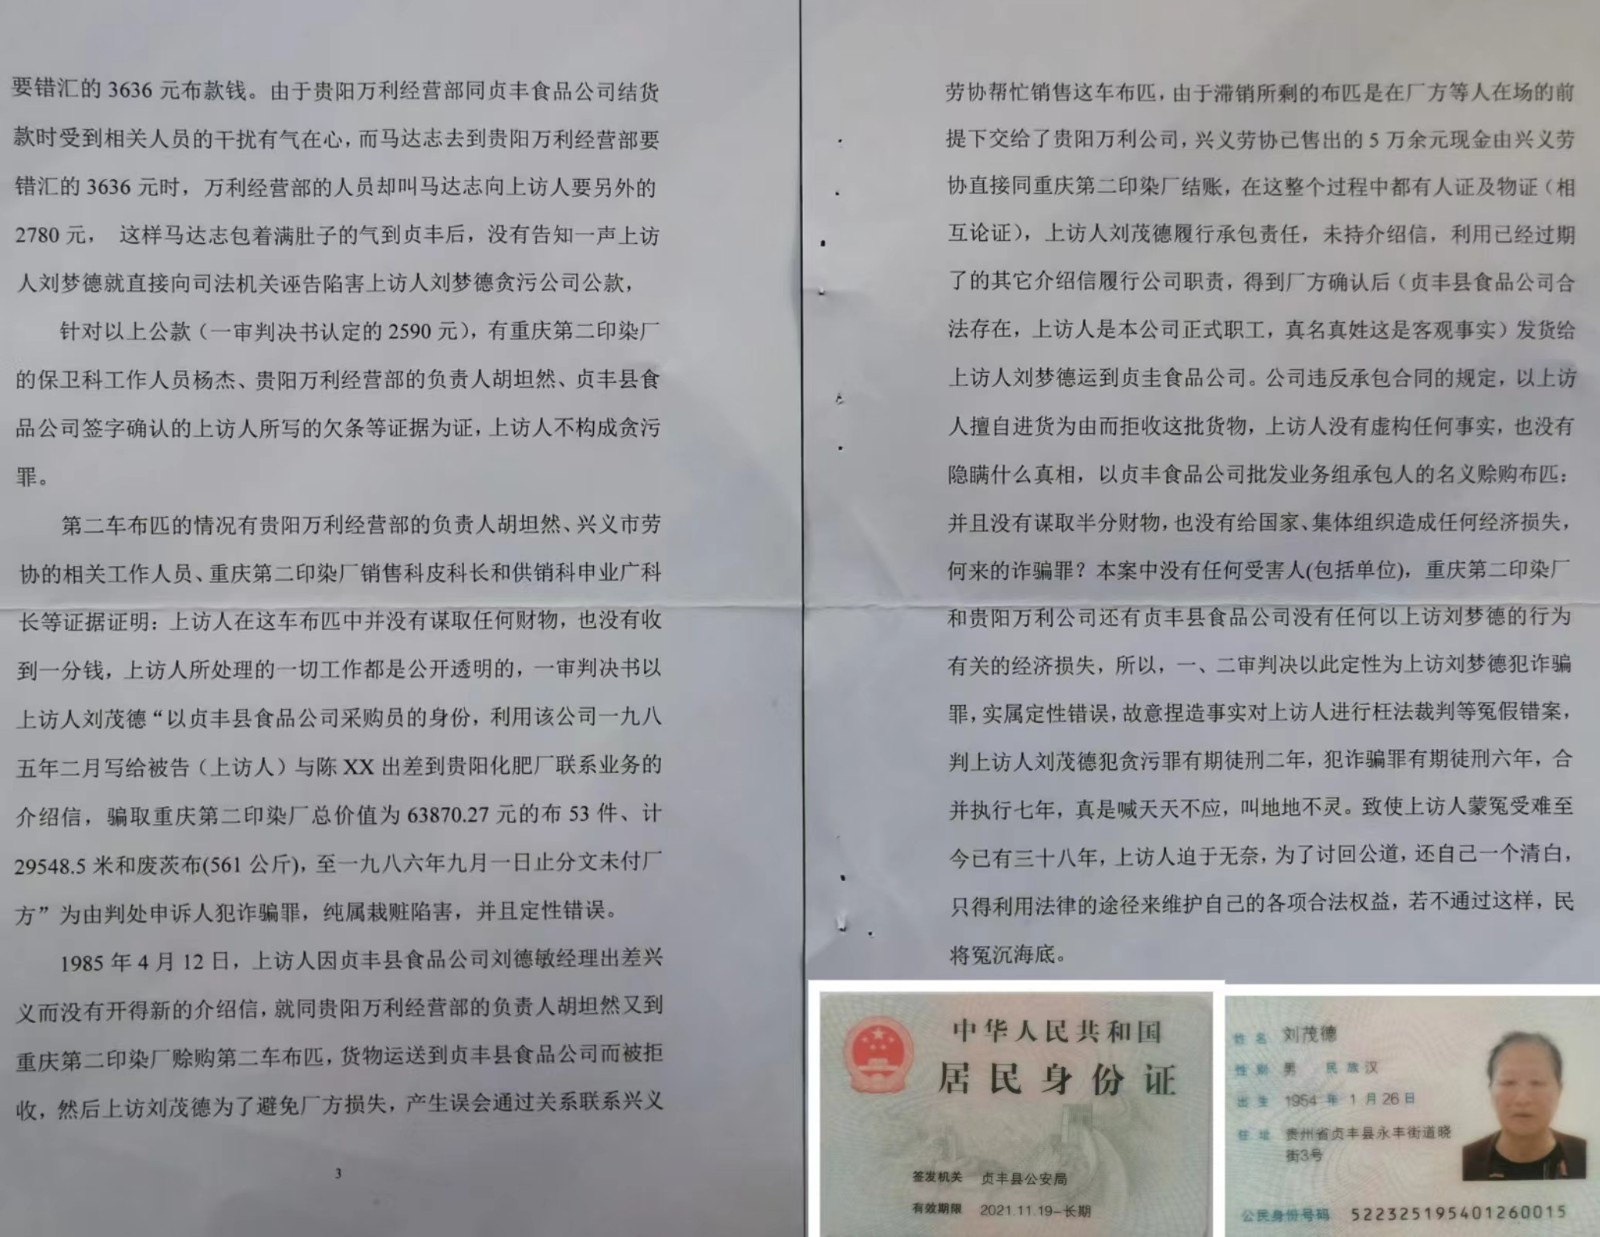 要错汇的 3636 元布款钱。由于贵阳万利经营部同贞丰食品公司结货
款时受到相关人员的干扰有气在心，而马达志去到贵阳万利经营部要
错汇的 3636 元时，万利经营部的人员却叫马达志向上访人要另外的
2780 元， 这样马达志包着满肚子的气到贞丰后，没有告知一声上访
人刘梦德就直接向司法机关诬告陷害上访人刘梦德贪污公司公款，
针对以上公款（一审判决书认定的 2590 元），有重庆第二印染厂
的保卫科工作人员杨杰、贵阳万利经营部的负责人胡坦然、贞丰县食
品公司签字确认的上访人所写的欠条等证据为证，上访人不构成贪污
罪。
第二车布匹的情况有贵阳万利经营部的负责人胡坦然、兴义市劳
协的相关工作人员、重庆第二印染厂销售科皮科长和供销科申业广科
长等证据证明：上访人在这车布匹中并没有谋取任何财物，也没有收
到一分钱，上访人所处理的一切工作都是公开透明的，一审判决书以
上访人刘茂德“以贞丰县食品公司采购员的身份，利用该公司一九八
五年二月写给被告（上访人）与陈 XX 出差到贵阳化肥厂联系业务的
介绍信，骗取重庆第二印染厂总价值为 63870.27 元的布 53 件、计
29548.5 米和废茨布(561 公斤)，至一九八六年九月一日止分文未付厂
方”为由判处申诉人犯诈骗罪，纯属栽赃陷害，并且定性错误。
1985 年 4 月 12 日，上访人因贞丰县食品公司刘德敏经理出差兴
义而没有开得新的介绍信，就同贵阳万利经营部的负责人胡坦然又到
重庆第二印染厂赊购第二车布匹，货物运送到贞丰县食品公司而被拒
收，然后上访刘茂德为了避免厂方损失，产生误会通过关系联系兴义
3
劳协帮忙销售这车布匹，由于滞销所剩的布匹是在厂方等人在场的前
提下交给了贵阳万利公司，兴义劳协已售出的 5 万余元现金由兴义劳
协直接同重庆第二印染厂结账，在这整个过程中都有人证及物证（相
互论证），上访人刘茂德履行承包责任，未持介绍信，利用已经过期
了的其它介绍信履行公司职责，得到厂方确认后（贞丰县食品公司合
法存在，上访人是本公司正式职工，真名真姓这是客观事实）发货给
上访人刘梦德运到贞圭食品公司。公司违反承包合同的规定，以上访
人擅自进货为由而拒收这批货物，上访人没有虚构任何事实，也没有
隐瞒什么真相，以贞丰食品公司批发业务组承包人的名义赊购布匹：
并且没有谋取半分财物，也没有给国家、集体组织造成任何经济损失，
何来的诈骗罪？本案中没有任何受害人(包括单位)，重庆第二印染厂
和贵阳万利公司还有贞丰县食品公司没有任何以上访刘梦德的行为
有关的经济损失，所以，一、二审判决以此定性为上访刘梦德犯诈骗
罪，实属定性错误，故意捏造事实对上访人进行枉法裁判等冤假错案，
判上访人刘茂德犯贪污罪有期徒刑二年，犯诈骗罪有期徒刑六年，合
并执行七年，真是喊天天不应，叫地地不灵。致使上访人蒙冤受难至
今已有三十八年，上访人迫于无奈，为了讨回公道，还自己一个清白，
只得利用法律的途径来维护自己的各项合法权益，若不通过这样，民
将冤沉海底。
中华人民共和国
居民身份证
签发机关 贞丰县公安局
有效期限 2021.11.19-长期
姓名 刘茂德
性别 男 民族 汉
出生 1954 年 1 月 26 日
住址 贵州省贞丰县永丰街道晓
街3号
公民身份号码 522325195401260015